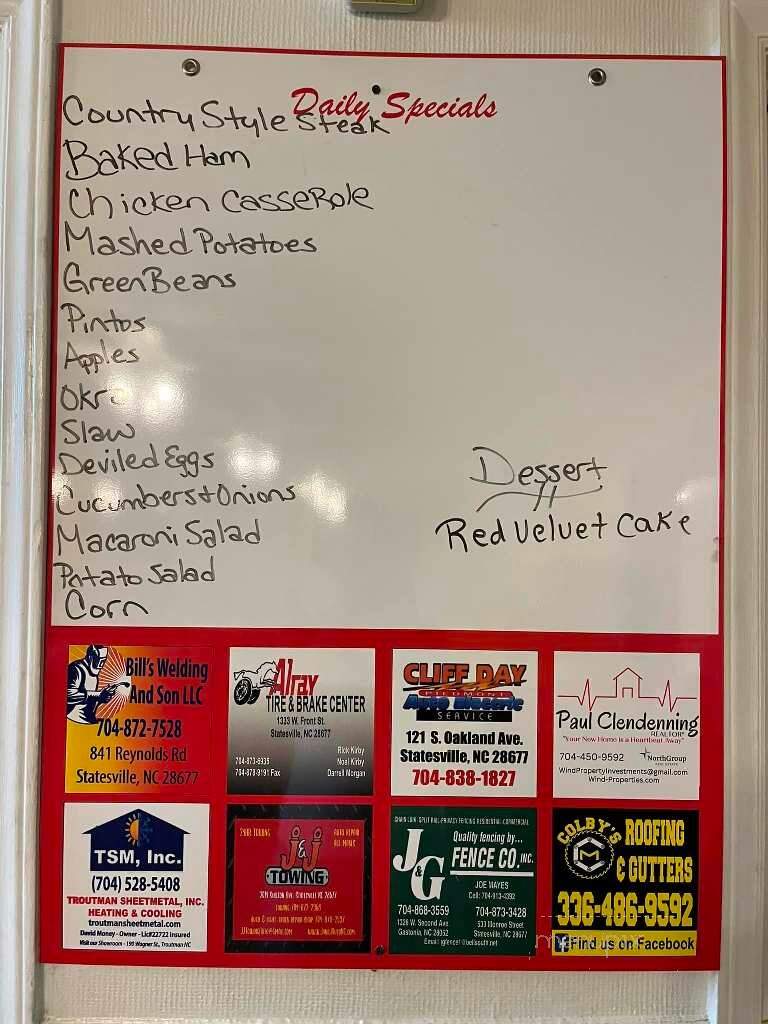 Daily Specials
Country Style Steak
Baked Ham
Chicken Casserole
Mashed Potatoes
Green Beans
Pintos
Apples
Okra
Slaw
Deviled Eggs
Cucumbers + Onions
Macaroni Salad
Potato Salad
Corn
Dessert
Red Velvet Cake
Bill's Welding
And Son LLC
704-872-7528
841 Reynolds Rd
Statesville, NC 28677
Alray
TIRE & BRAKE CENTER
1333 W. Front St.
Statesville, NC 28677
Rick Kirby
Noel Kirby
Darrell Morgan
CLIFF DAY
PIEDMONT
Auto Electric
SERVICE
121 S. Oakland Ave.
Statesville, NC 28677
704-838-1827
Paul Clendenning
REALTOR®
"Your New Home is a Heartbeat Away"
704-450-9592
NorthGroup
REAL ESTATE
WindPropertyInvestments@gmail.com
Wind-Properties.com
TSM, Inc.
(704) 528-5408
TROUTMAN SHEETMETAL, INC.
HEATING & COOLING
troutmansheetmetal.com
David Money - Owner - Lic#22722 Insured
Visit our Showroom - 190 Wagner St., Troutman NC
24HR TOWING
AUTO REPAIR
ALL MAKES
J&J
TOWING
CHAIN LINK-SPLIT RAIL-PRIVACY FENCING RESIDENTIAL COMMERCIAL
J&G
Quality fencing by...
FENCE CO. INC.
JOE MAYES
Cell: 704-913-4392
704-868-3559
1326 W. Second Ave
Gastonia, NC 28052
704-873-3428
533 Monroe Street
Statesville, NC 28677
Email: jgfence1@bellsouth.net
COLBY'S
ROOFING
& GUTTERS
336-486-9592
Find us on Facebook